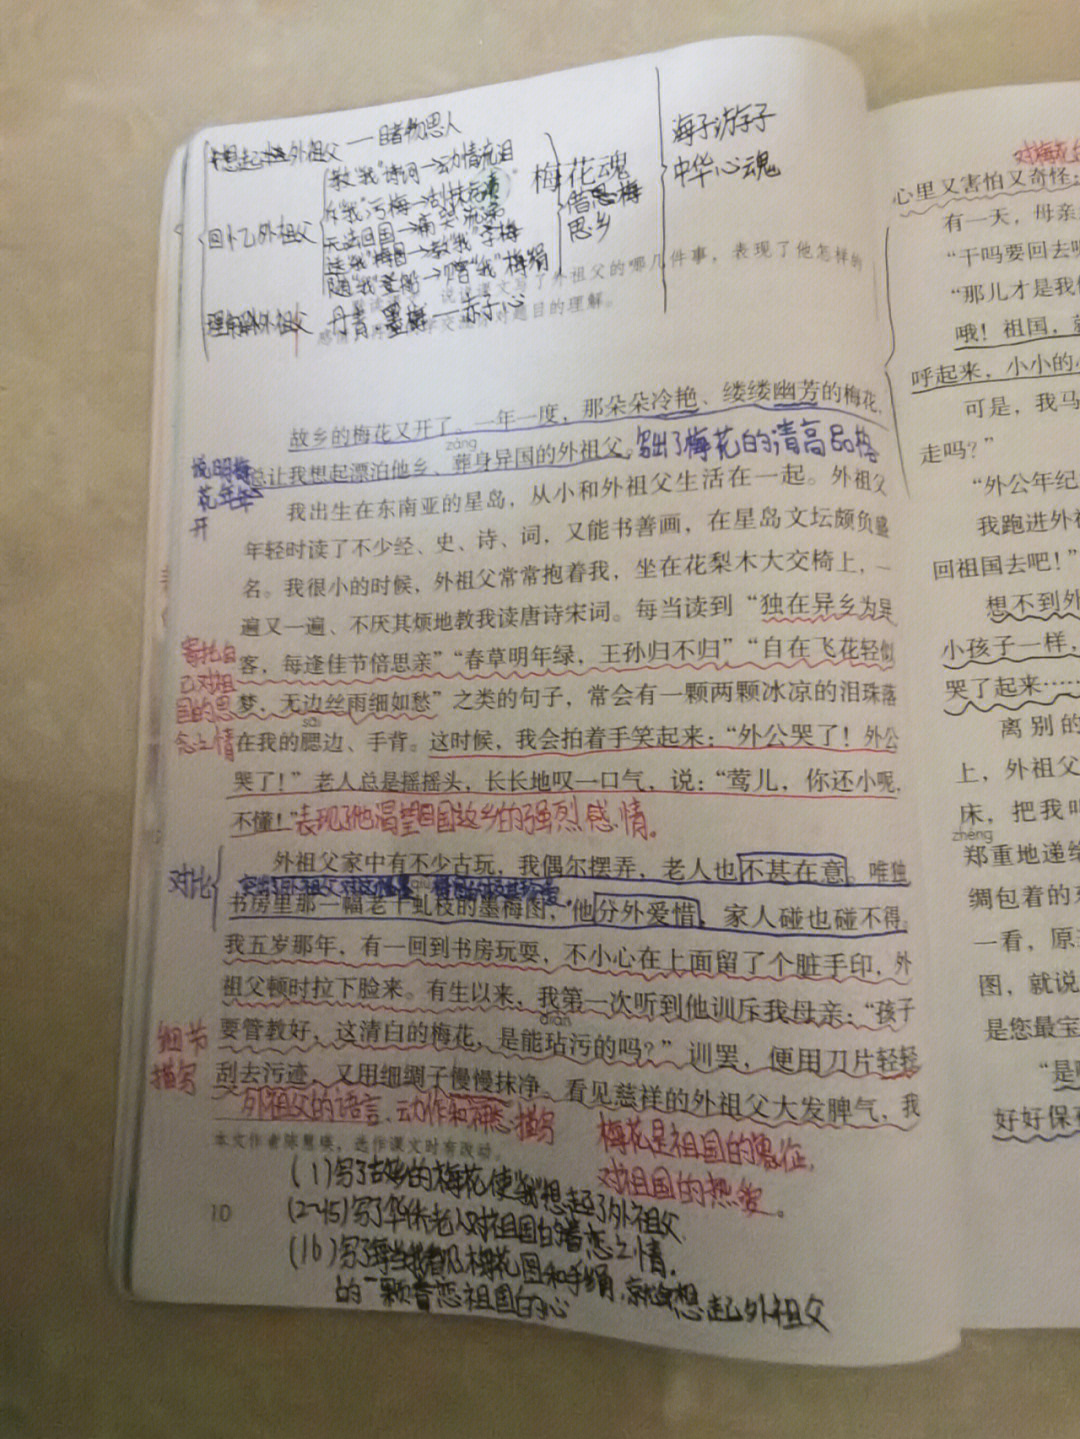 想起外祖父 — 睹物思人
教"我"诗词→动情流泪
斥"我"污梅→刮抹污渍
回忆外祖父
无法回国→痛哭流泪
送"我"梅图→教"我"学梅
随"我"登船→赠"我"梅绢
理解外祖父 丹青墨梅—赤子心
梅花魂
借梅
思乡
海子游子
中华心魂
说说课文写了外祖父的哪几件事,表现了他怎样的
对题目的理解。
故乡的梅花又开了。一年一度,那朵朵冷艳、缕缕幽芳的梅花,
zàng
总让我想起漂泊他乡、葬身异国的外祖父。写出了梅花的清高品格
说明梅
花年年
开
我出生在东南亚的星岛,从小和外祖父生活在一起。外祖父
年轻时读了不少经、史、诗、词,又能书善画,在星岛文坛颇负盛
名。我很小的时候,外祖父常常抱着我,坐在花梨木大交椅上,一
遍又一遍、不厌其烦地教我读唐诗宋词。每当读到“独在异乡为异
客,每逢佳节倍思亲”“春草明年绿,王孙归不归”“自在飞花轻似
梦,无边丝雨细如愁”之类的句子,常会有一颗两颗冰凉的泪珠落
sāi
在我的腮边、手背。这时候,我会拍着手笑起来:“外公哭了!外公
哭了!”老人总是摇摇头,长长地叹一口气,说:“莺儿,你还小呢,
不懂!”表现了他渴望回国故乡的强烈感情。
寄托自
己对祖
国的思
念之情
外祖父家中有不少古玩,我偶尔摆弄,老人也不甚在意。唯独
对比
qiú
书房里那一幅老干虬枝的墨梅图,他分外爱惜,家人碰也碰不得。
我五岁那年,有一回到书房玩耍,不小心在上面留了个脏手印,外
祖父顿时拉下脸来。有生以来,我第一次听到他训斥我母亲:“孩子
diàn
要管教好,这清白的梅花,是能玷污的吗?”训罢,便用刀片轻轻
刮去污迹,又用细绸子慢慢抹净。看见慈祥的外祖父大发脾气,我
细节
描写
外祖父的语言、动作和神态描写
梅花是祖国的象征,
对祖国的热爱。
本文作者陈慧瑛,选作课文时有改动。
(1)写了故乡的梅花使"我"想起了外祖父
10
(2-15)写了华侨老人对祖国的眷恋之情
(16)写了每当我看见梅花图和手绢,就会想起外祖父
的一颗眷恋祖国的心
心里又害怕又奇怪:
有一天,母亲
“干吗要回去呢
“那儿才是我
哦!祖国,就
呼起来,小小的
可是,我马
走吗?”
“外公年纪
我跑进外
回祖国去吧!”
想不到外
小孩子一样,
哭了起来……
离别的
上,外祖父
床,把我叫
zhèng
郑重地递给
绸包着的东
一看,原
图,就说
是您最宝
“是
好好保